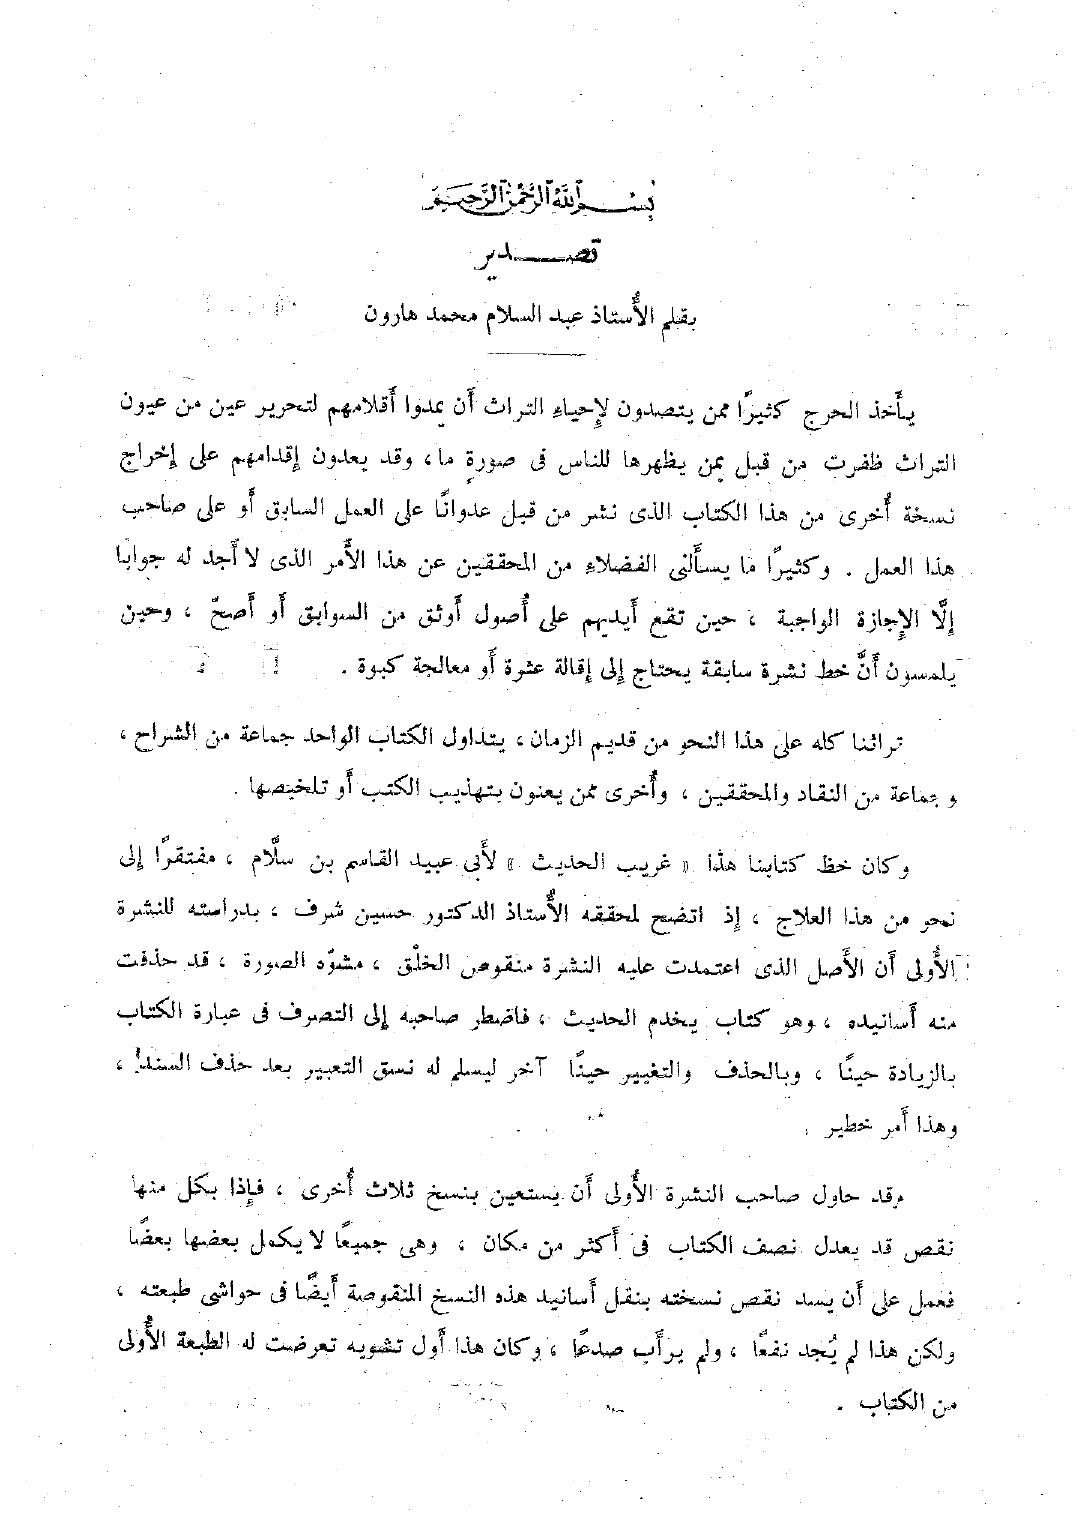 بِسْمِ اللَّهِ الرَّحْمٰنِ الرَّحِيمِ
تصدير
بقلم الأُستاذ عبد السلام محمد هارون
يأخذ الحرج كثيرًا ممن يتصدون لإِحياءِ التراث أَن يمدوا أَقلامهم لتحرير عين من عيون
التراث ظفرت من قبل بمن يظهرها للناس فى صورةٍ ما ، وقد يعدون إِقدامهم على إِخراج
نسخة أُخرى من هذا الكتاب الذى نشر من قبل عدوانًا على العمل السابق أَو على صاحب
هذا العمل . وكثيرًا ما يسأَلنى الفضلاءِ من المحققين عن هذا الأَمر الذى لا أَجد له جوابا
إِلَّا الإِجازة الواجبة ، حين تقع أَيديهم على أُصول أَوثق من السوابق أَو أَصحّ ، وحين
يلمسون أَنَّ خط نشرة سابقة يحتاج إِلى إِقالة عثرة أَو معالجة كبوة .
تراثنا كله على هذا النحو من قديم الزمان ، يتداول الكتاب الواحد جماعة من الشراح ،
وجماعة من النقاد والمحققين ، وأُخرى ممن يعنون بتهذيب الكتب أَو تلخيصها .
وكان حظ كتابنا هذا « غريب الحديث » لأَبى عبيد القاسم بن سلَّام ، مفتقرًا إِلى
نحو من هذا العلاج ، إِذ اتضح لمحققه الأُستاذ الدكتور حسين شرف ، بدراسته للنشرة
الأُولى أَن الأَصل الذى اعتمدت عليه النشرة منقوص الخلْق ، مشوّه الصورة ، قد حذفت
منه أَسانيده ، وهو كتاب يخدم الحديث ، فاضطر صاحبه إِلى التصرف فى عبارة الكتاب
بالزيادة حينًا ، وبالحذف والتغيير حينًا آخر ليسلم له نسق التعبير بعد حذف السند! ،
وهذا أَمر خطير .
وقد حاول صاحب النشرة الأُولى أَن يستعين بنسخ ثلاث أُخرى ، فإِذا بكل منها
نقص قد يعدل نصف الكتاب فى أَكثر من مكان ، وهى جميعًا لا يكمل بعضها بعضًا
فعمل على أَن يسد نقص نسخته بنقل أَسانيد هذه النسخ المنقوصة أَيضًا فى حواشى طبعته ،
ولكن هذا لم يُجد نفعًا ، ولم يرأَب صدعًا ، وكان هذا أَول تشويه تعرضت له الطبعة الأُولى
من الكتاب .